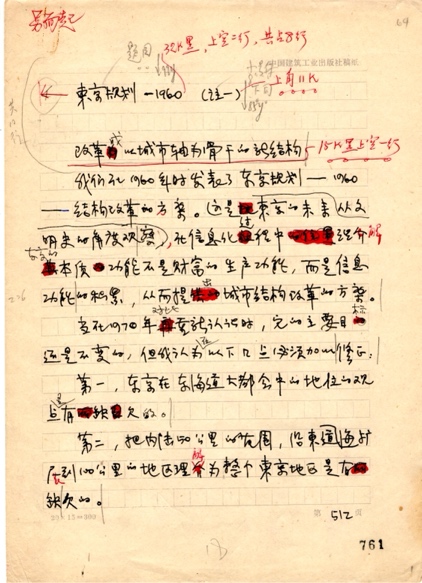 64
题目
32K黑，上空二行，共占8行
中国建筑工业出版社稿纸
上角11K
东京规划—1960 （注一）
改革成以城市轴为骨干的新结构
15K黑上空一行
我们在1960年时发表了东京规划——1960
——结构改革的方案。这是东京的未来从文
明史的角度观察，在信息化过程中理解
东京的本质功能不是财富的生产功能，而是信息
功能的积累，从而提出城市结构改革的方案。
在1970年重新认识时，它的主要目标
还是不变的，但我认为以下几点必须加以修正：
第一，东京在东海道大都会中的地位的观
点有欠的。
第二，把内陆50公里的范围，沿东海
展到100公里的地区理解为整个东京地区是
缺欠的。
20×15=300
第 512 页
18
761